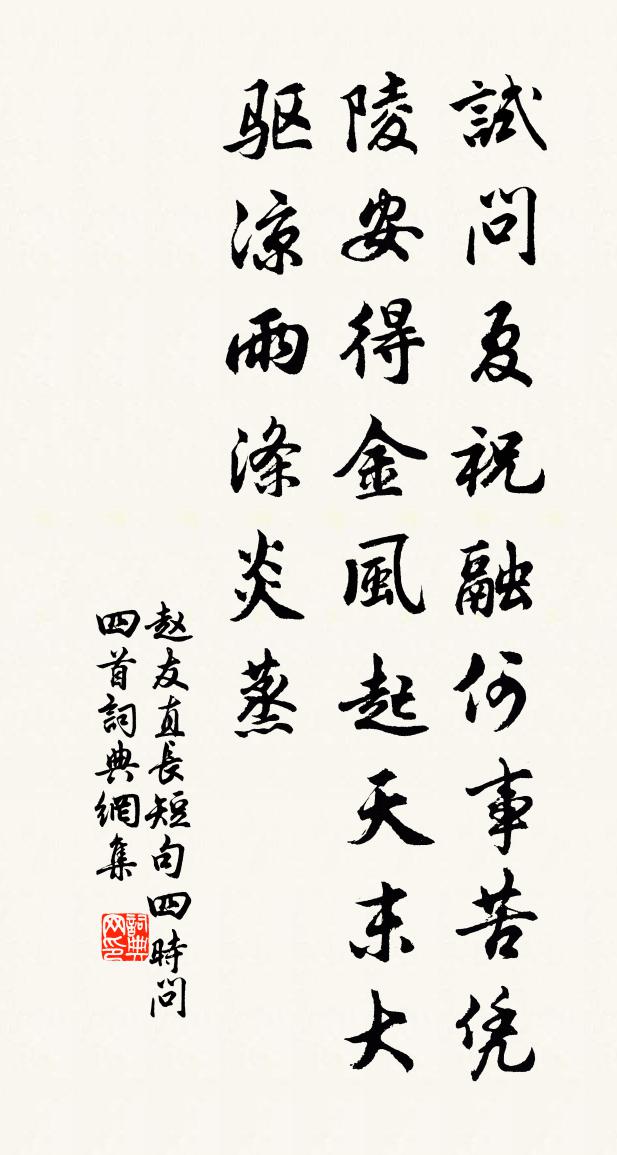 試問夏祝融何事苦凭
陵安得金風起天末大
驱涼雨滌炎蒸
赵友直長短句四時問
四首詞典網集
詞典网印